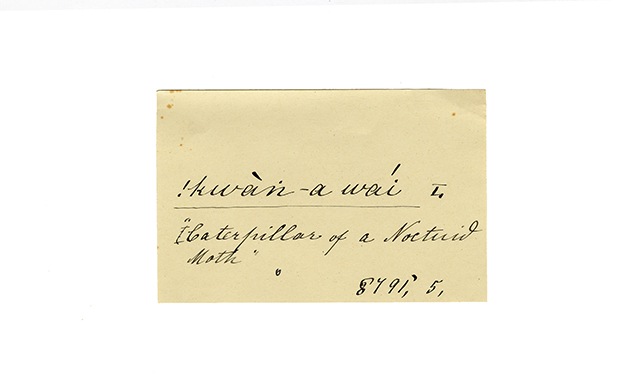 !kwàṅ-a waí L
"Caterpillar of a Noctuid
Moth"
8791', 5,